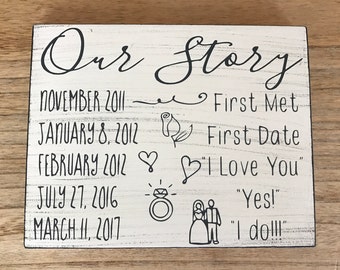 Our Story
NOVEMBER 2011 First Met
JANUARY 8, 2012 First Date
FEBRUARY 2012 "I Love You"
JULY 27, 2016 "Yes!"
MARCH 11, 2017 "I do!!!"